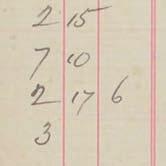 2 15
7 10
2 17 6
3